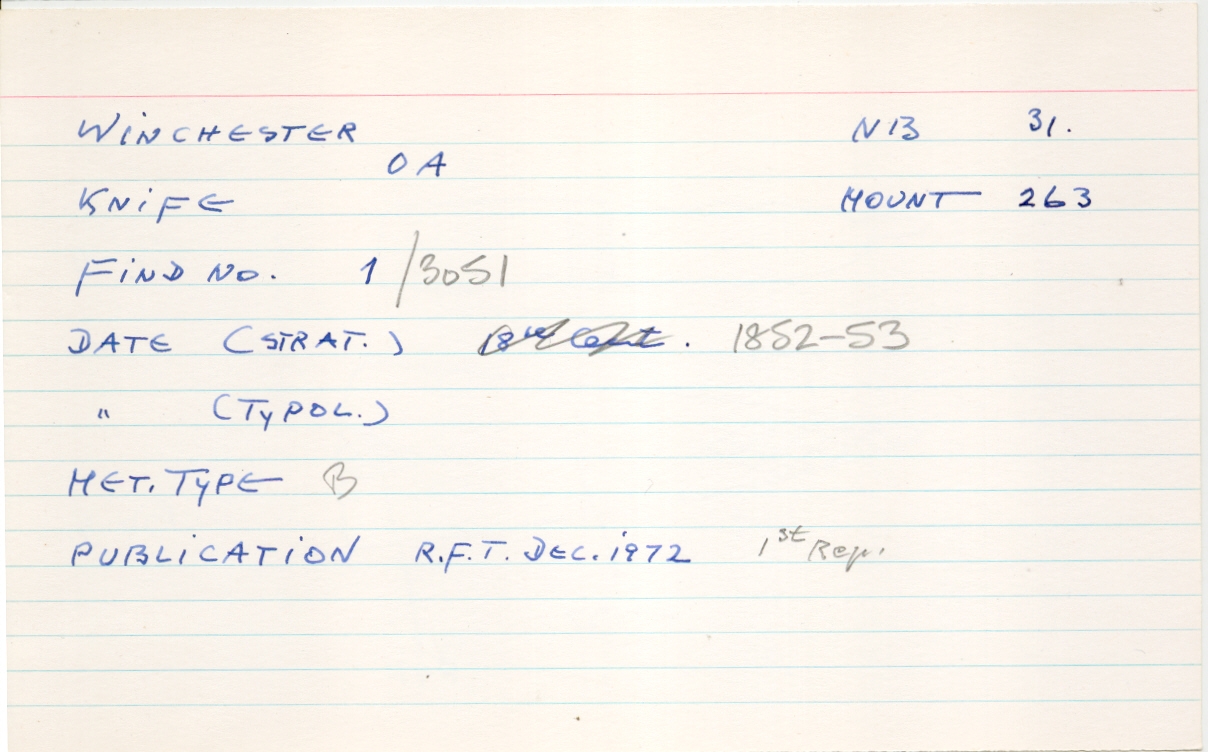 WINCHESTER NB 31.
OA
KNIFE MOUNT 263
FIND NO. 1/3051
DATE (STRAT.) 18th Cent. 1852-53
" (TYPOL.)
MET. TYPE B
PUBLICATION R.F.T. DEC. 1972 1st Rep.